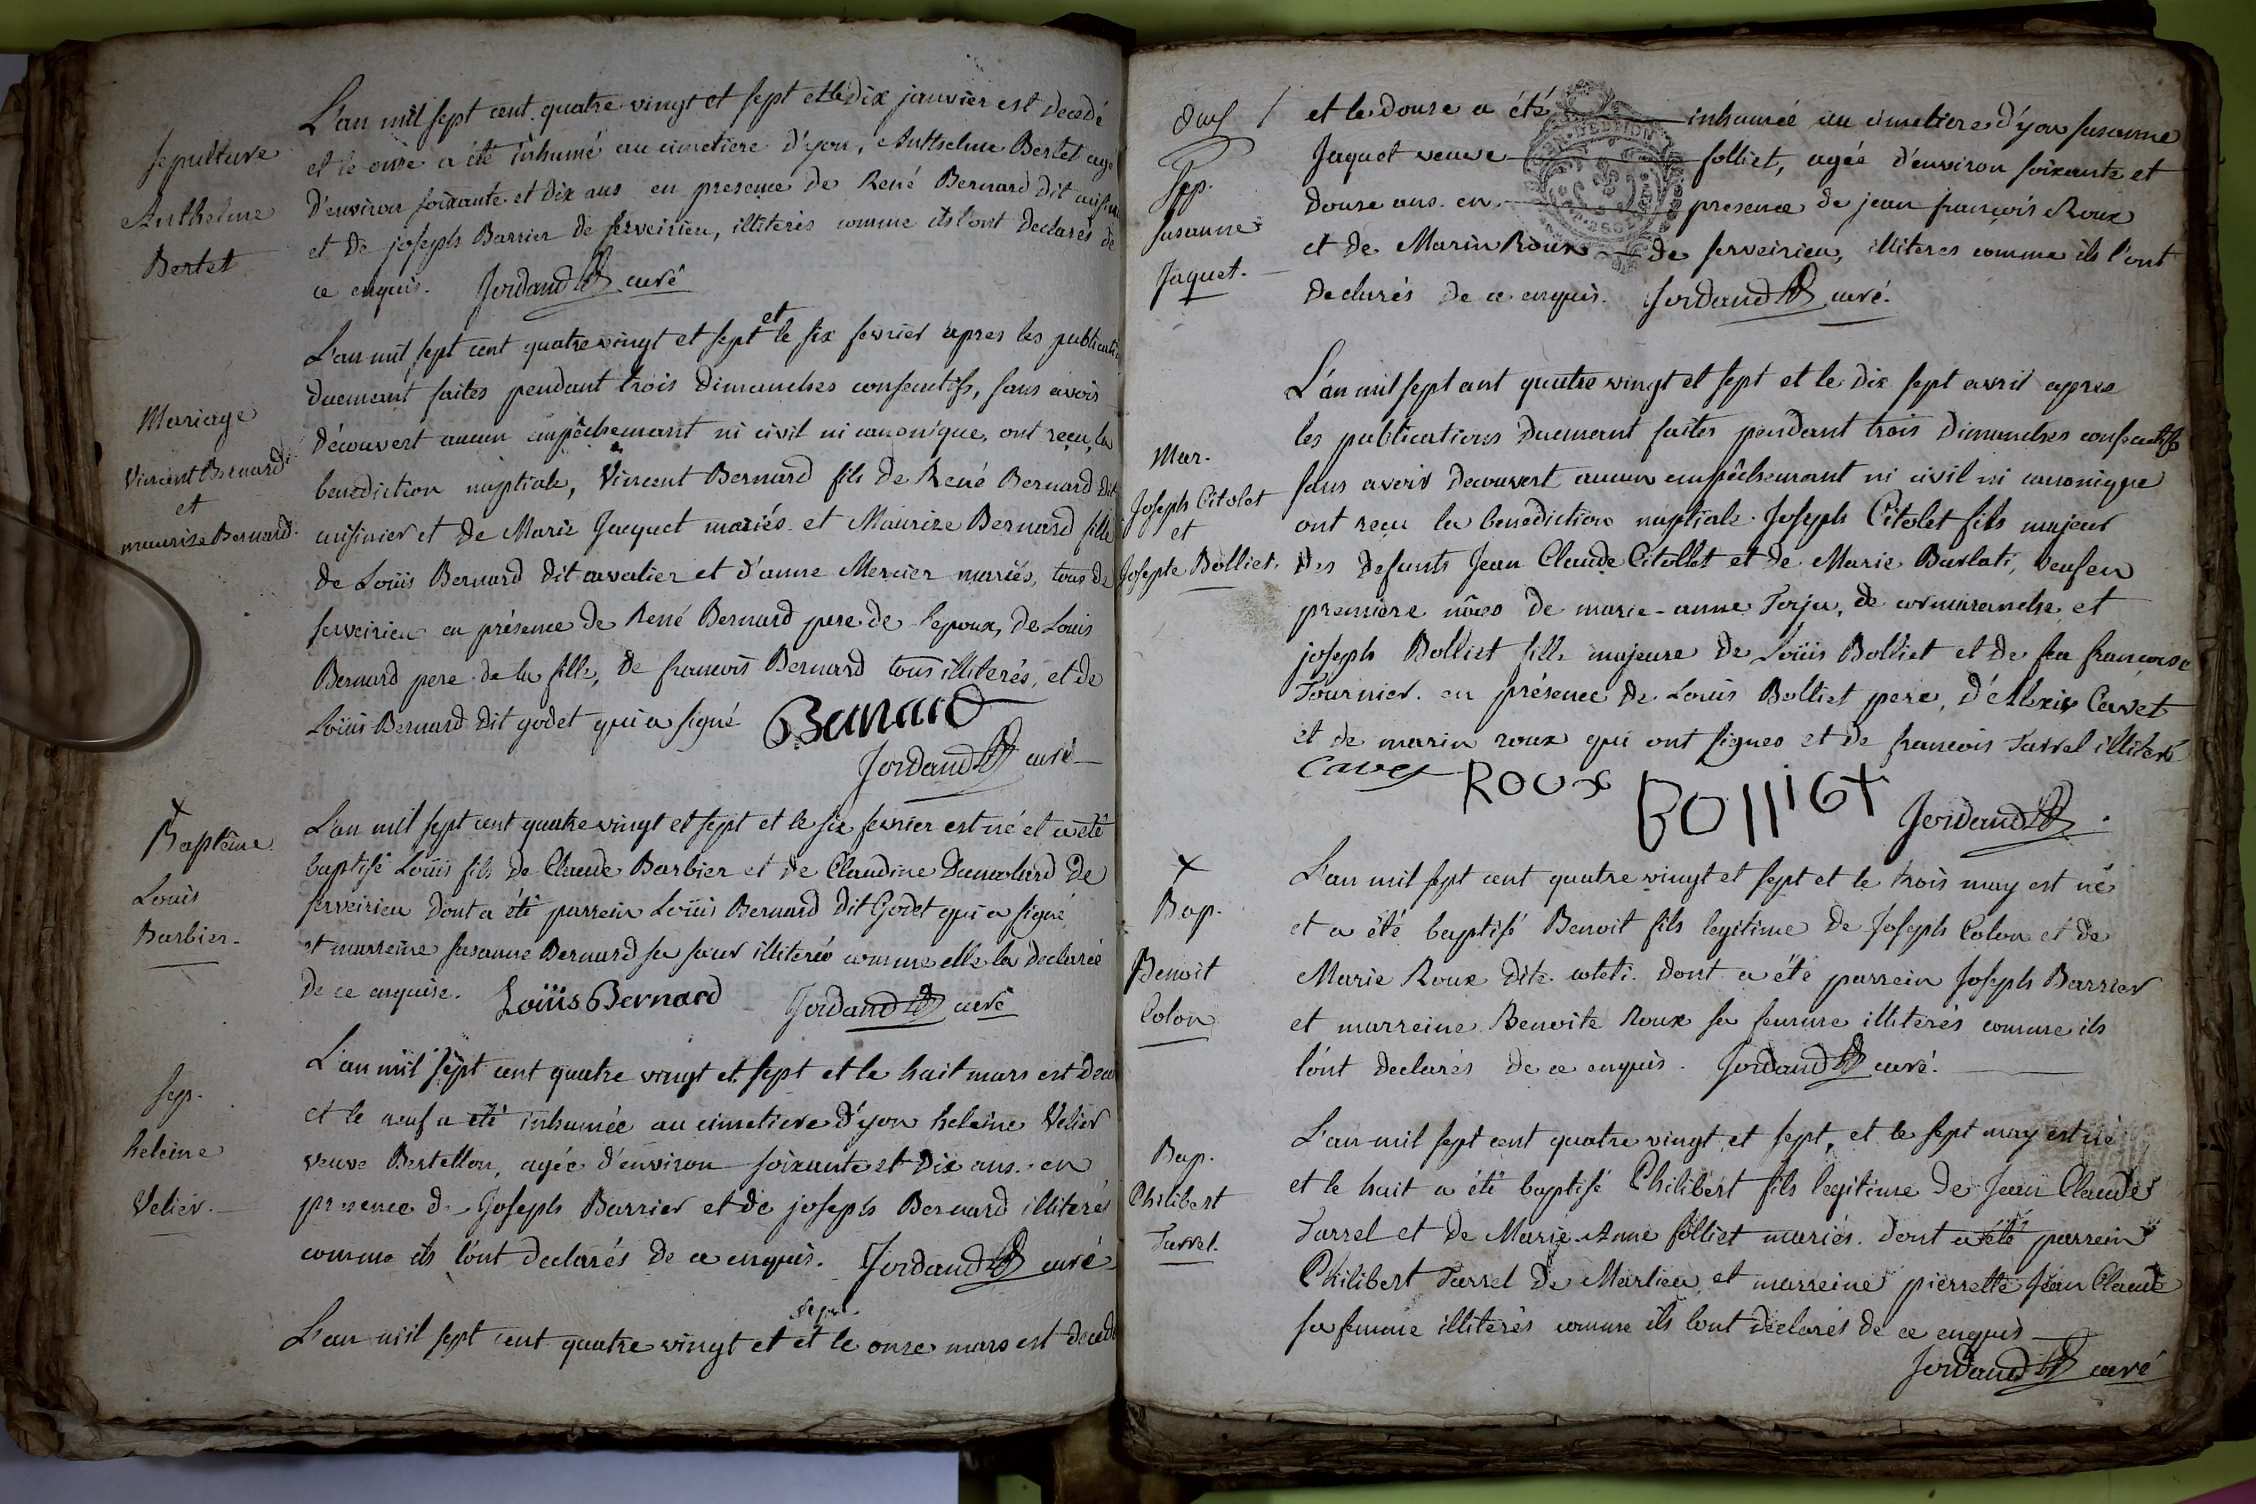 Sepulture
Anthelme
Bertet
L'an mil sept cent quatre vingt et sept et le dix janvier est decedé
et le onse a été inhumé au cimetiere d'yon, Anthelme Bertet agé
d'environ soixante et dix ans en presence de René Bernard dit
et de joseph Barrier de serveirieu, illiterés comme ils l'ont declarés de
ce enquis. Jordand curé
Mariage
Vincent Bernard
et
maurise Bernard.
L'an mil sept cent quatre vingt et sept et le six fevrier apres les publicati
duemeant faites pendant trois dimanches consecutifs, sans avoir
découvert aucun empêchemant ni civil ni canonique, ont reçu la
benediction nuptiale, Vincent Bernard fils de René Bernard dit
cuisinier et de Marie Jacquet mariés. et Maurize Bernard fille
de Loüis Bernard dit cavalier et d'anne Mercier mariés, tous de
serveirieu en présence de René Bernard pere de l'epoux, de Louis
Bernard pere de la fille, de francois Bernard tous illiterés, et de
Loüis Bernard dit godet qui a signé Bernard
Jordand curé
+
Baptême
Louis
Barbier.
L'an mil sept cent quatre vingt et sept et le six fevrier est né et a été
baptisé Loüis fils de Claude Barbier et de Claudine Dumolard de
serveirieu dont a été parrein Loüis Bernard dit Godet qui a signé
et marreine susanne Bernard sa sœur illiterée comme elle la declarée
de ce enquise. Loüis Bernard Jordand curé
Sep.
heleine
Velier.
L'an mil sept cent quatre vingt et sept et le huit mars est
et le neuf a été inhumée au cimetiere d'yon heleine Velier
veuve Bertellon, agée d'environ soixante et dix ans. en
presence de Joseph Barrier et de joseph Bernard illiterés
comme ils l'ont declarés de ce enquis. Jordand curé
L'an mil sept cent quatre vingt et sept et le onze mars est decedé
Sep.
susanne
Jaquet.
et le douse a été inhumée au cimetiere d'yon susanne
Jaquet veuve folliet, agée d'environ soixante et
douse ans. en presence de jean françois Roux
et de Marin Roux de serveirieu, illiteres comme ils l'ont
declarés de ce enquis. Jordand curé.
Mar.
Joseph Citolet
et
Josepte Bolliet.
L'an mil sept cent quatre vingt et sept et le dix sept avril apres
les publications duemant faites pendant trois dimanches consecutifs
sans avoir decouvert aucun empêchemant ni civil ni canonique
ont reçu la benediction nuptiale. Joseph Citolet fils majeur
des defunts Jean Claude Citollet et de Marie Barlati, veuf en
premiere nôces de marie-anne Terju, de cormaranche, et
joseph Bolliet fille majeure de Loüis Bolliet et de feu francoise
Tournier. en présence de Louis Bolliet pere, d'Alexis Cavet
et de marin roux qui ont signes et de francois Tarrel illiteré
Cavet Roux BOlliet Jordand
+
Bap.
Benoit
Colon
L'an mil sept cent quatre vingt et sept et le trois may est né
et a été baptisé Benoit fils legitime de Joseph Colon et de
Marie Roux dite coteti. dont a été parrein Joseph Barrier
et marreine Benoite Roux sa femme illiterés comme ils
l'ont declarés de ce enquis. Jordand curé.
Bap.
Philibert
Tarrel.
L'an mil sept cent quatre vingt et sept, et le sept may est né
et le huit a été baptisé Philibert fils legitime de Jean Claude
Tarrel et de Marie Anne folliet mariés. dont a été parrein
Philibert Tarrel de Marlieu, et marreine pierrette Jean Claude
sa femme illiterés comme ils lont declarés de ce enquis
Jordand curé